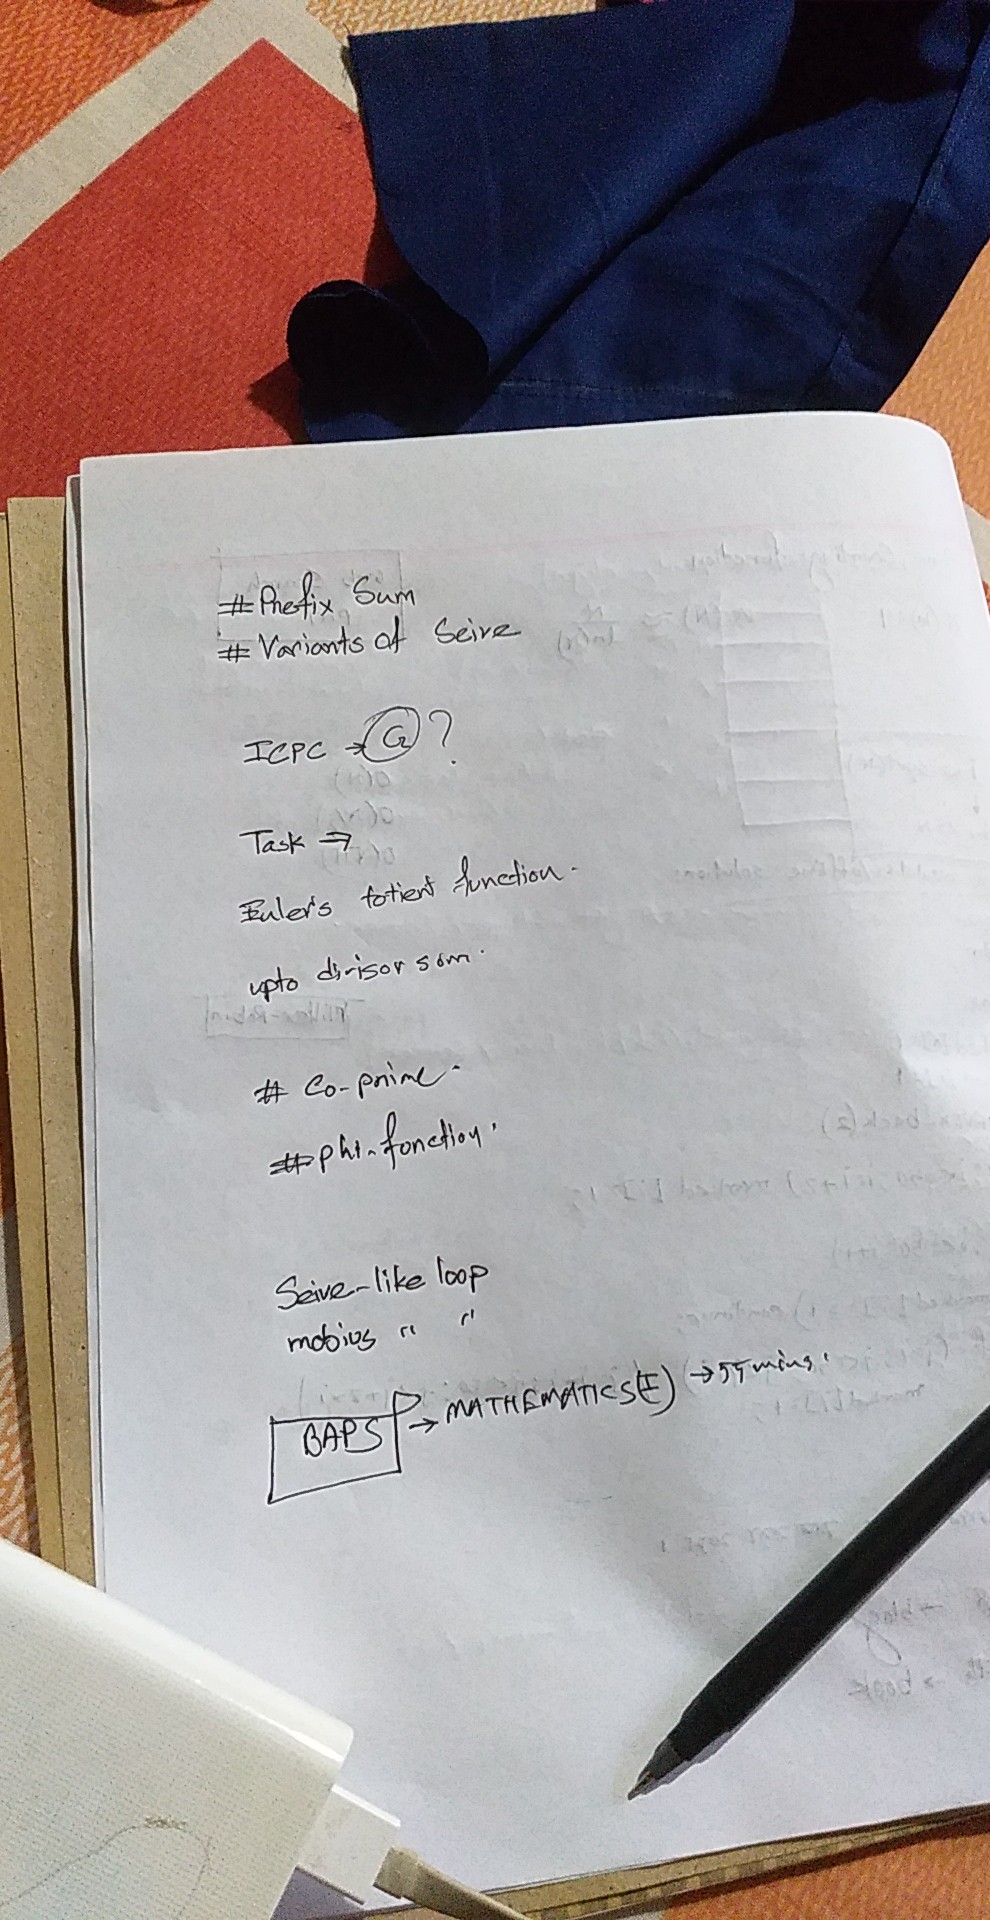 # Prefix Sum
# Variants of Seive
ICPC → G ?
Task ⇒
Euler's totient function.
upto divisor sum.
# Co-prime.
# phi-function.
Seive-like loop
mobius " "
BAPS → MATHEMATICS(I) → 55 mins.